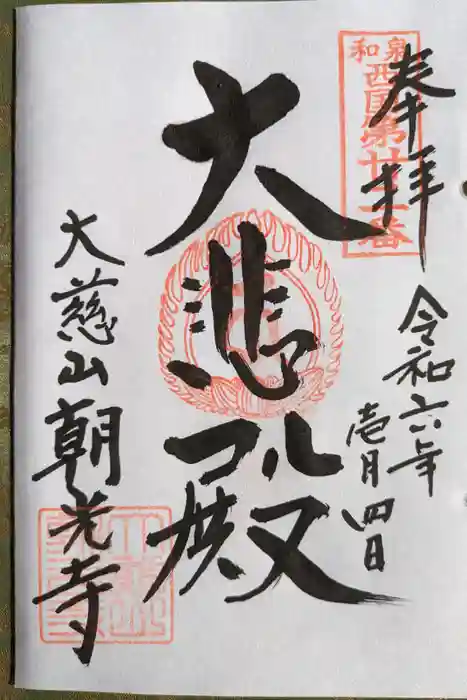 奉拝
令和六年
壱月四日
和泉
西国第廿二番
大悲殿
大慈山朝光寺